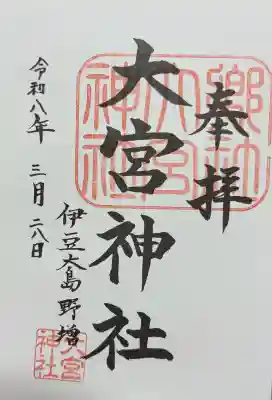 奉拝
郷社
大宮
神社
大宮神社
伊豆大島野増
大宮
神社
令和八年 三月 二八日